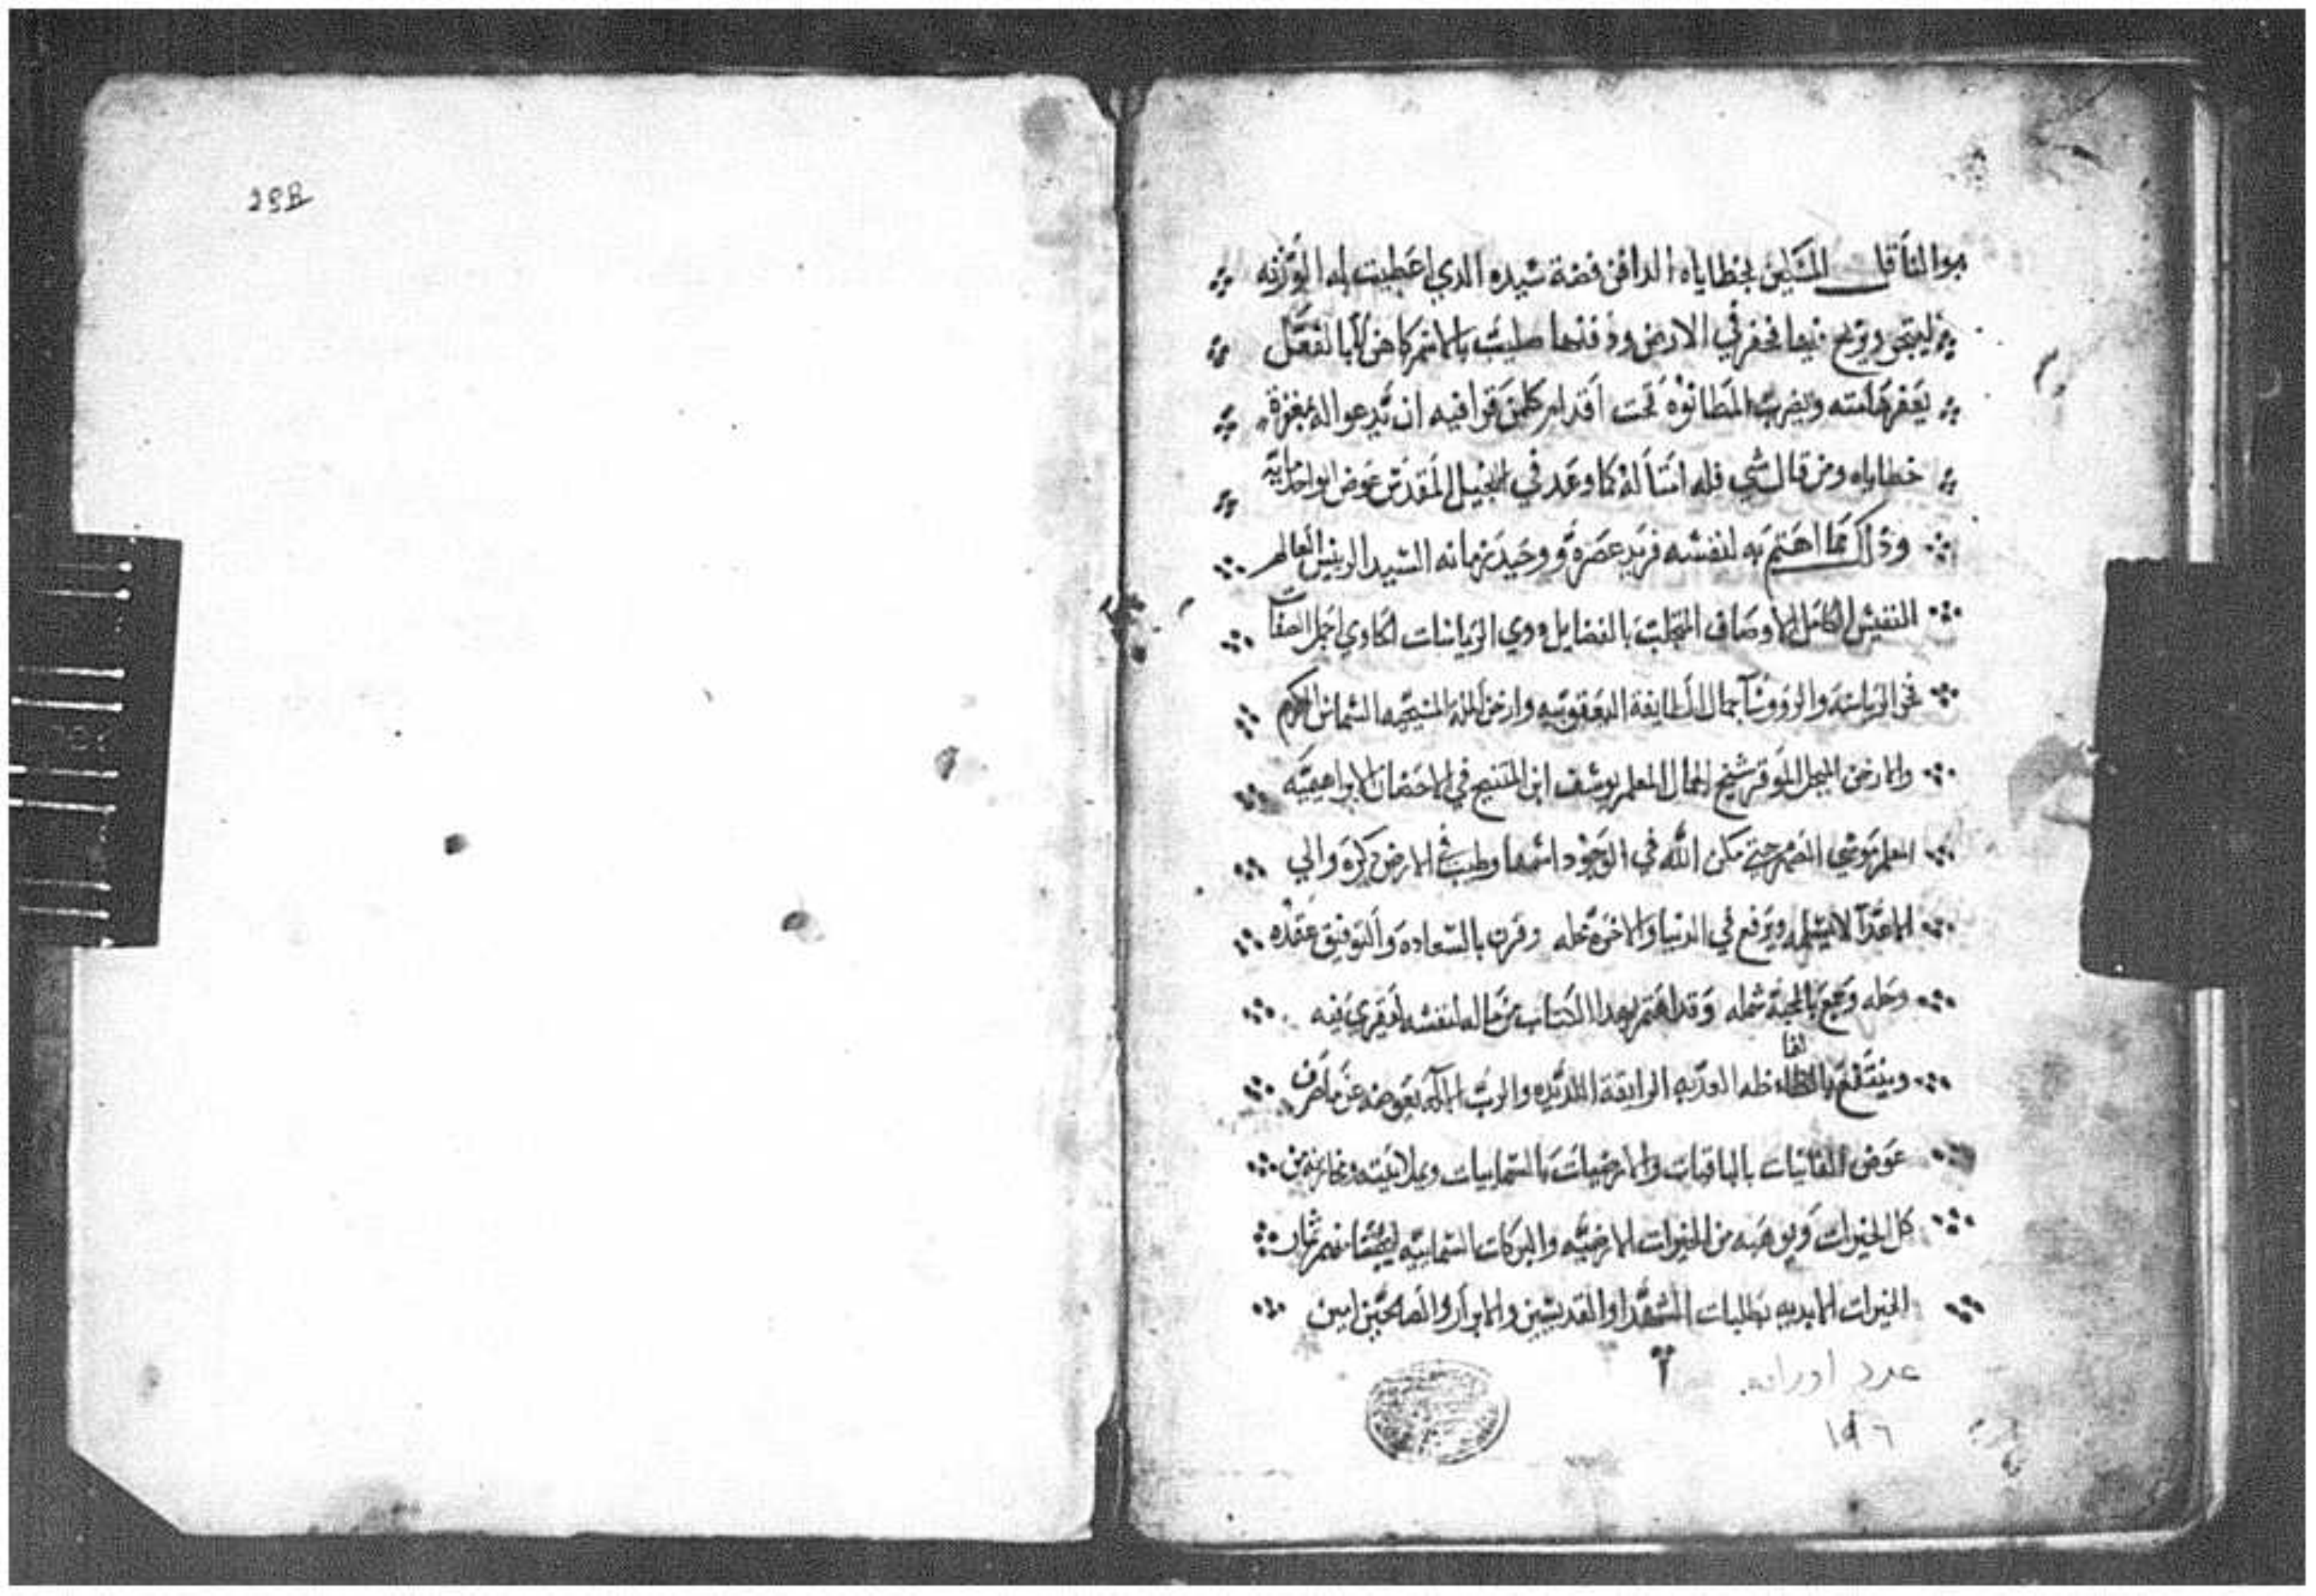 المتليين بخطاياه الدافن فضة سيده الدي اعطيت له الوزنه
فحفر في الارض ودفنها طيب بالاسم كاهن لا بالفعل
يعفر هامته ويضرب المطانوه تحت اقدام كلمن قرا فيه ان يدعوا له بمغفرة
خطاياه ومن قال شي فله امتاله كما وعد في الانجيل المقدس عوض الواحد مايه
وذلك مما اهتم به لنفسه فريد عصره ووحيد زمانه السيد الريس العالم
النفيس الكامل الاوصاف بالفضايل ودي الرياسات الحاوي اجمل الصفات
فخر الرياسه والرووسا جمال الطايفة اليعقوبيه وارخن المله المسيحيه الشماس المكرم
والارخن المبجل الموقر شيخ المعلم يوسف ابن المتنيح في الاحضان الابراهيميه
المعلم مكن الله في الوجود اسمها وطيب في الارض دكره والي
الاعدا لا يسلمه ويرفع في الدنيا والاخره محله وقرن بالسعاده والتوفيق عقده
وحله وجمع بالمحبة شمله وقد اهتم بهدا الكتاب من ماله لنفسه ليقرى فيه
وينتفع بالفاظه العدبه الرايقة اللديده والرب الاله يعوضه عن ما صرف
عوض الفانيات بالباقيات والارضيات بالسماييات ويملا بيته ومخازنه من
كل الخيرات ويوهبه من الخيرات الارضيه والبركات السماييه
الخيرات الابديه بطلبات الشهدا والقديسين والابرار والصالحين امين
عدد اوراقه
١٩٦